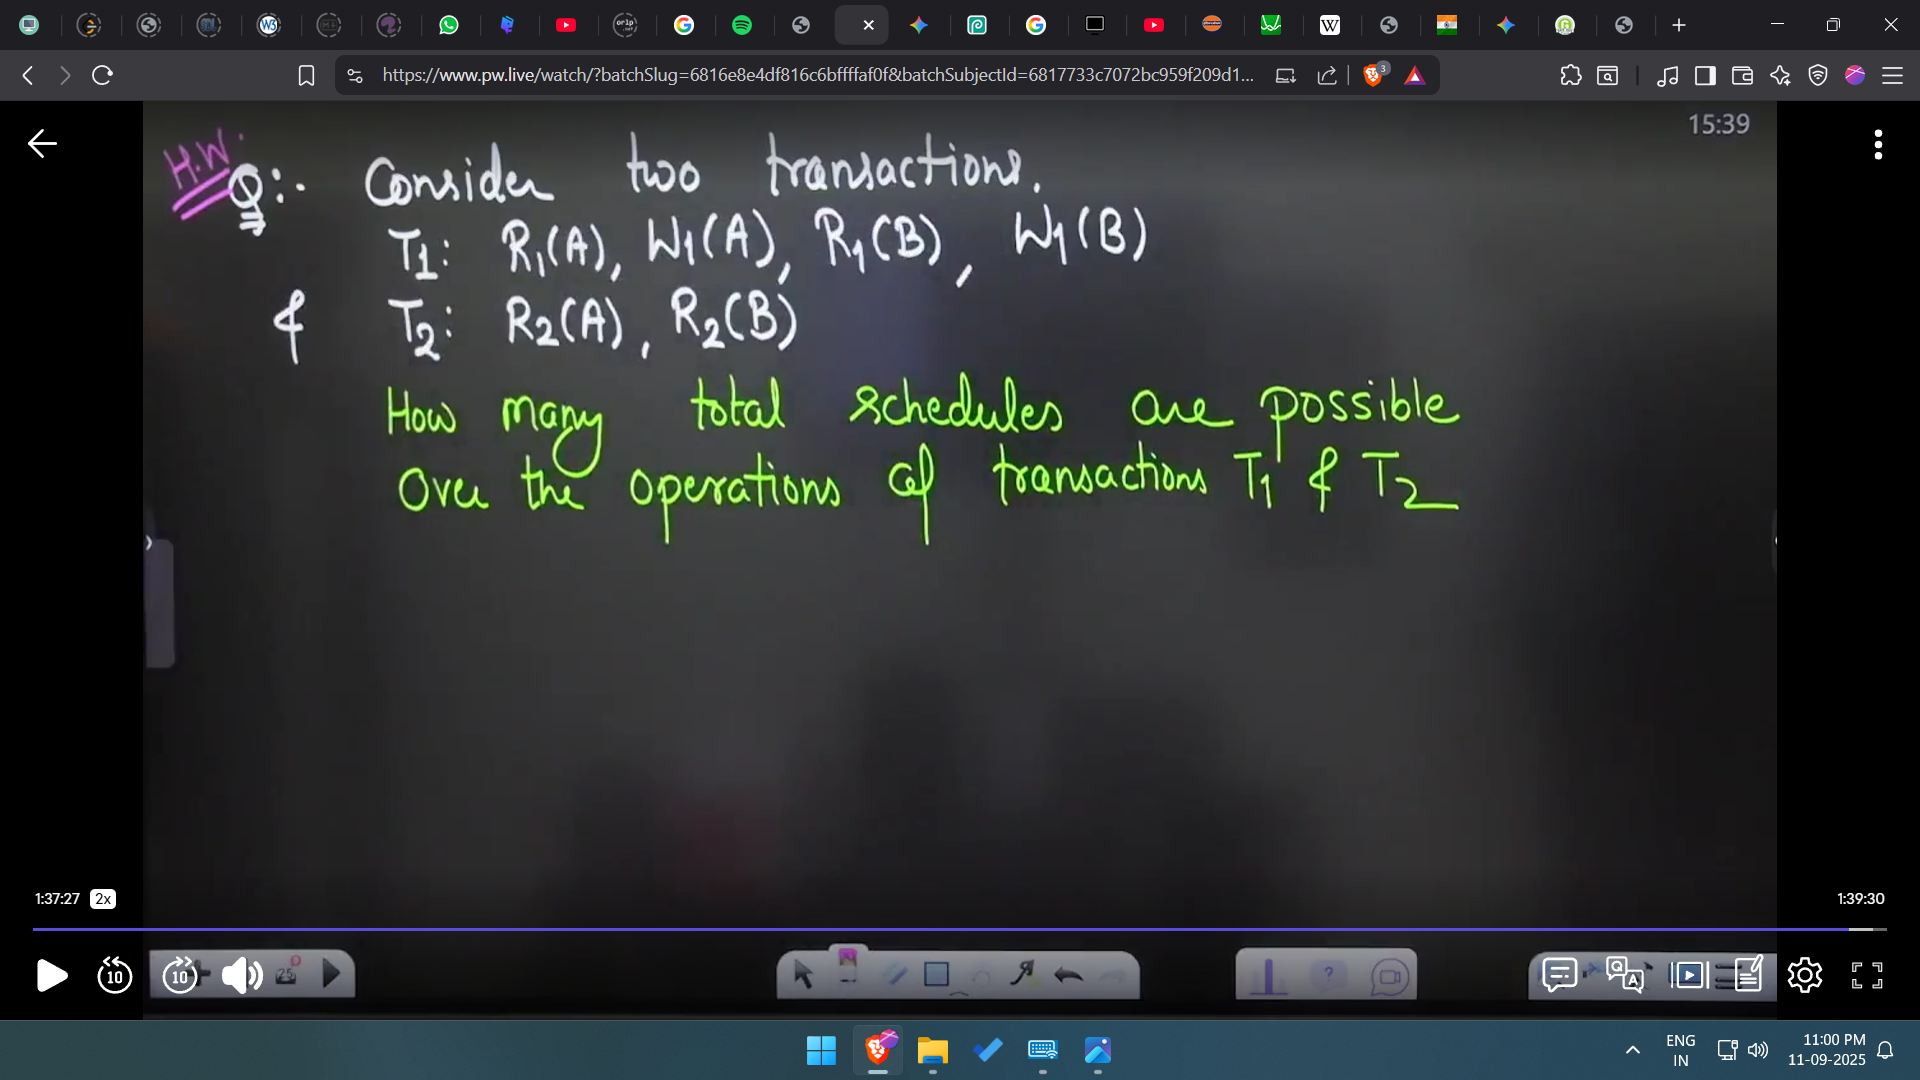 https://www.pw.live/watch/?batchSlug=6816e8e4df816c6bffffaf0f&batchSubjectId=6817733c7072bc959f209d1...
3
15:39
H.W.
Q:- Consider two transactions.
T1: R1(A), W1(A), R1(B), W1(B)
& T2: R2(A), R2(B)
How many total schedules are possible
Over the operations of transactions T1 & T2
1:37:27 2x 1:39:30
10 10 25
ENG 11:00 PM
IN 11-09-2025